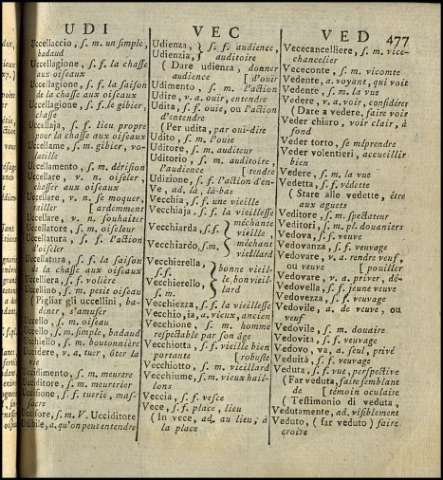 UDI
VEC
VED
477
Uccellaccio, s. m. un simple,
badaud
Uccellagione, s. f. la chasse
aux oiseaux
Uccellagione, s. f. la saison
de la chasse aux oiseaux
Uccellagione, s. f. le gibier,
chasse
Uccellaja, s. f. lieu propre
pour la chasse aux oiseaux
Uccellame, s. m. gibier, vo-
laille
Uccellamento, s. m. dérision
Uccellare, v. n. oiseler,
chasser aux oiseaux
Uccellare, v. n. se moquer,
railler [ardemment
Uccellare, v. n. souhaiter
Uccellatore, s. m. oiseleur
Uccellatura, s. f. l'action
d'oiseler
Uccellatura, s. f. la saison
de la chasse aux oiseaux
Uccelliera, s. f. voliere
Uccellino, s. m. petit oiseau
(Pigliar gli uccellini, ba-
dauder, s'amuser
Uccello, s. m. oiseau
Uccello, s. m. simple, badaud
Occhiello, s. m. boutonniere
Uccidere, v. a. tuer, ôter la
vie
Uccidimento, s. m. meurtre
Ucciditore, s. m. meurtrier
Uccisione, s. f. tuerie, mas-
sacre
Uccisore, s. m. V. Ucciditore
Udibile, a. qu'on peut entendre
Udienza, } s. f. audience,
Udienzia, } auditoire
(Dare udienza, donner
audience [d'ouir
Udimento, s. m. l'action
Udire, v. a. ouir, entendre
Udita, s. f. ouïe, ou l'action
d'entendre
(Per udita, par oui-dire
Udito, s. m. l'ouïe
Uditore, s. m. auditeur
Uditorio, s. m. auditoire,
l'audience [rendre
Udizione, s. f. l'action d'en-
Ve, ad. là, là-bas
Vecchia, s. f. une vieille
Vecchiaja, s. f. la vieillesse
Vecchiarda, s. f. } méchante
vieille
Vecchiardo, s. m. } méchant
vieillard
Vecchierella, } bonne vieil-
s. f.
Vecchierello, } le bon vieil-
s. m. lard
Vecchiezza, s. f. la vieillesse
Vecchio, ia, a. vieux, ancien
Vecchione, s. m. homme
respectable par son âge
Vecchiotta, s. f. vieille bien
portante [robuste
Vecchiotto, s. m. vieillard
Vecchiume, s. m. vieux hail-
lons
Veccia, s. f. vesce
Vece, s. f. place, lieu
(In vece, ad. au lieu, à
la place
Vececancelliere, s. m. vice-
chancelier
Vececonte, s. m. vicomte
Vedente, a. voyant, qui voit
Vedente, s. m. la vue
Vedere, v. a. voir, considérer
(Dare a vedere, faire voir
Veder chiaro, voir clair, à
fond
Veder torto, se méprendre
Veder volentieri, accueillir
bien
Vedere, s. m. la vue
Vedetta, s. f. védette
(Stare alle vedette, être
aux aguets
Veditore, s. m. spectateur
Veditori, s. m. pl. douaniers
Vedova, s. f. veuve
Vedovanza, s. f. veuvage
Vedovare, v. a. rendre veuf,
ou veuve [pouiller
Vedovare, v. a. priver, dé-
Vedovella, s. f. jeune veuve
Vedovezza, s. f. veuvage
Vedovile, a. de veuve, ou
veuf
Vedovile, s. m. douaire
Vedovita, s. f. veuvage
Vedovo, va, a. seul, privé
Veduità, s. f. veuvage
Veduta, s. f. vue, perspective
(Far veduta, faire semblant
de [témoin oculaire
(Testimonio di veduta,
Vedutamente, ad. visiblement
Veduto, (far veduto) faire
croire